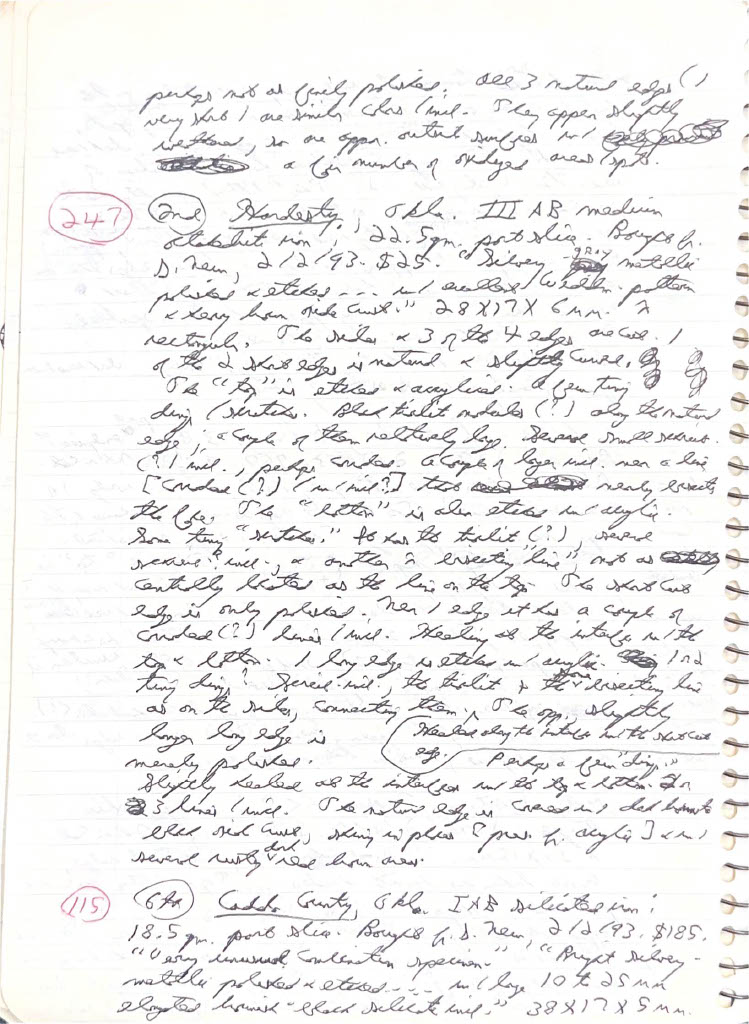 perhaps not as finely polished. All 3 natural edges (1
very short) are similar colors / incl. They appear slightly
weathered, so are appar. outer surfaces w/
a fair number of oxidized areas / spots.
247 2nd Hardesty, Okla. III AB medium
octahedrite iron; 22.5 gm. part slice. Bought fr.
D. New, 2/2/93. $25. "Silvery gray metallic
polished & etched --- w/ excellent Widm. pattern
& xeny brown oxide crust." 28X17X6 mm. A
rectangle. The sides & 3 of the 4 edges are cut. 1
of the 2 short edges is natural & slightly curved.
The "top" is etched & acrylized. A few tiny
dings / scratches. Black troilite nodules (?) along the natural
edge; a couple of them relatively large. Several small
(?) incl., perhaps corroded. A couple of larger incl. near a line
[corroded (?) / w/ incl?] that nearly bisects
the face. The "bottom" is also etched w/ acrylic.
Some tiny "scratches." It has the troilite (?), several
incl., & another "bisecting line", not as
centrally located as the line on the top. The short cut
edge is only polished. Near 1 edge it has a couple of
corroded (?) lines / incl. Healing at the interface w/ the
top & bottom. 1 long edge is etched w/ acrylic. 1 or 2
tiny dings? Several incl., the troilite & the bisecting line
as on the sides, connecting them. The opp., slightly
longer long edge is
Healed along the interface with the short cut
edge. Perhaps a few "dings."
merely polished.
Slightly healed at the interfaces w/ the top & bottom. 2 or
3 lines / incl. The natural edge is covered w/ dark brown to
black oxide crust, shiny in places [pres. fr. acrylic] & w/
several rusty dark red brown areas.
115 6th Caddo County, Okla. IAB silicated iron;
18.5 gm. part slice. Bought fr. D. New, 2/2/93. $185.
"Very unusual combination specimen." "Bright silvery-
metallic polished & etched ---- w/ large 10 to 25 mm
elongated brownish-black silicate incl." 38X17X5 mm.